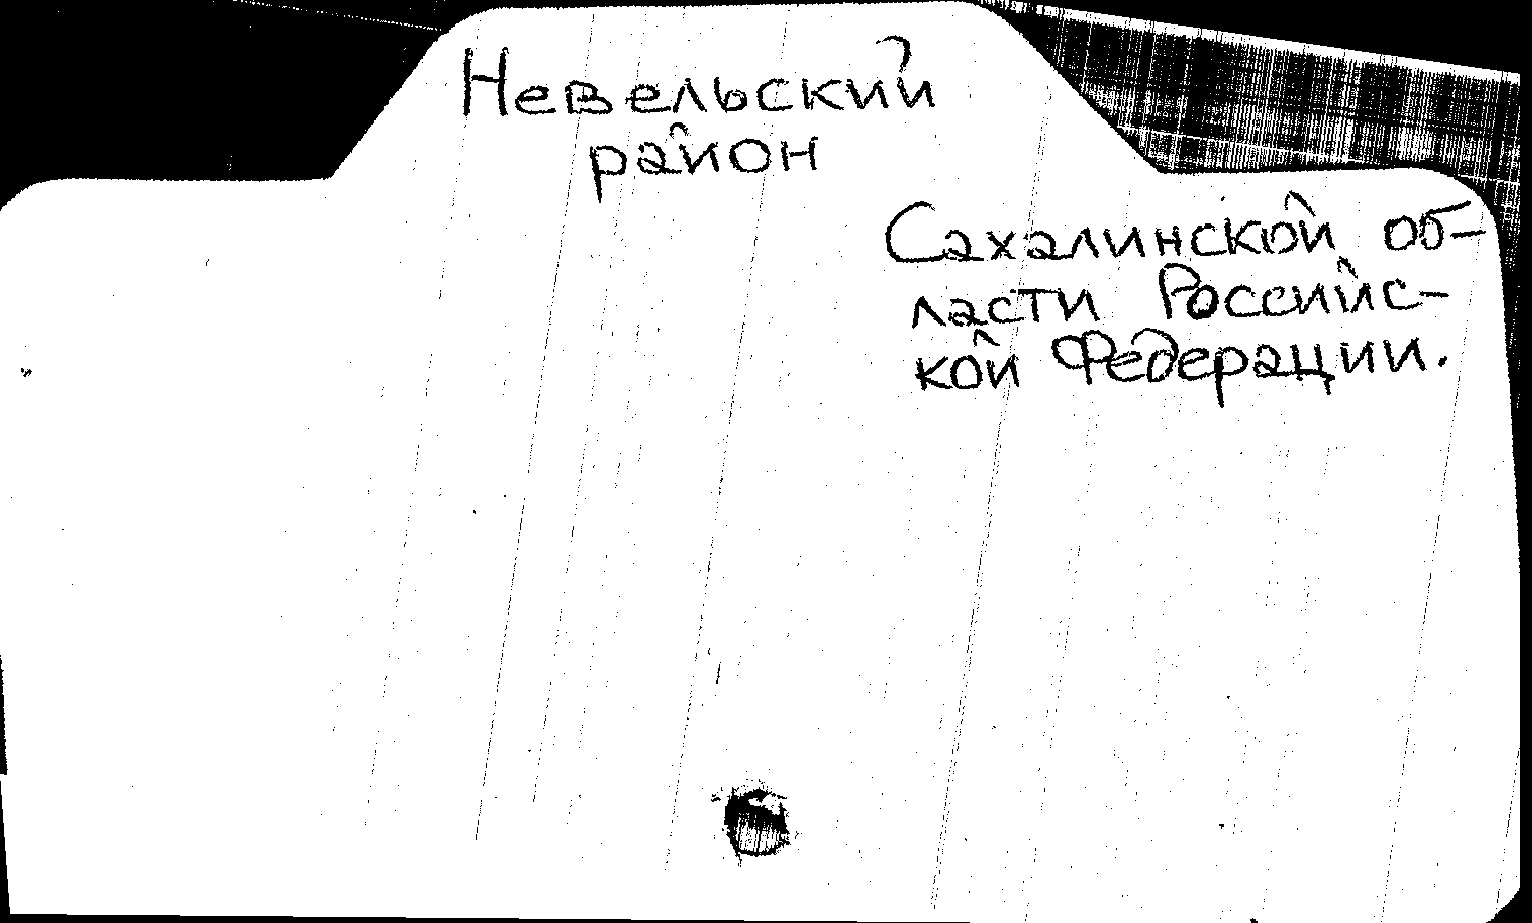 Невельский
район
Сахалинской об-
ласти Российс-
кой Федерации.